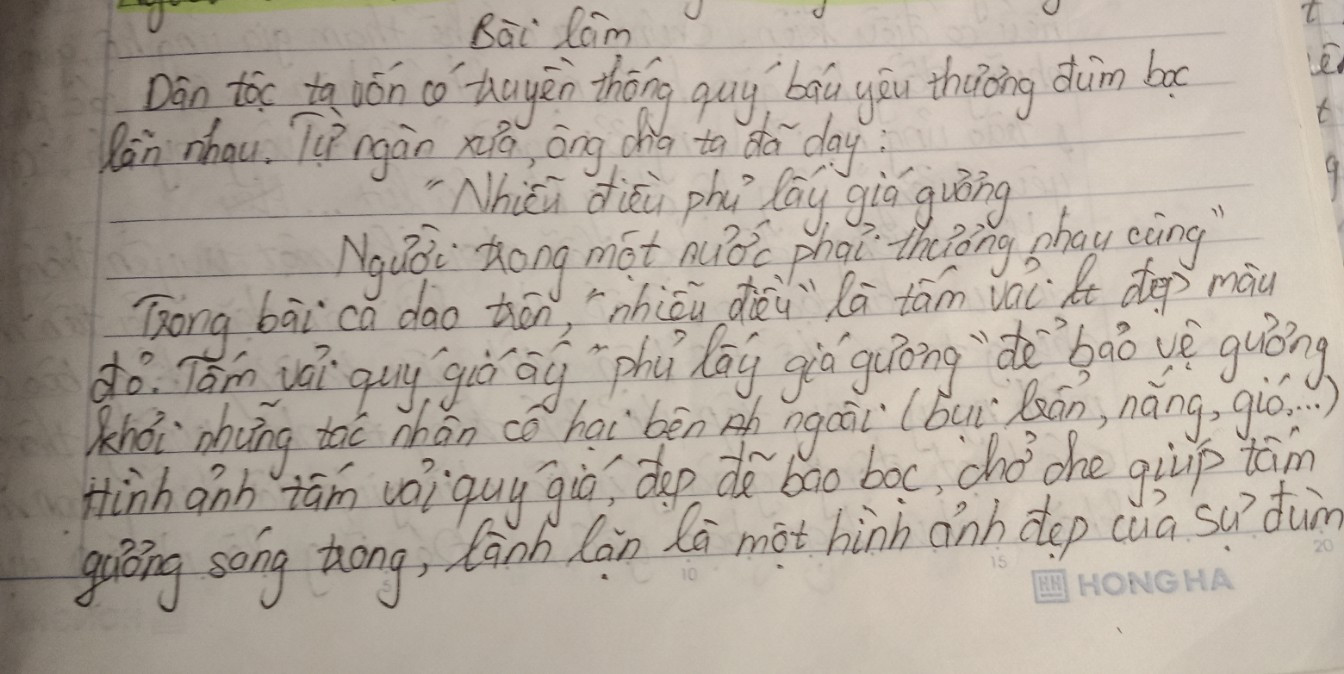 Bài làm
Dân tộc ta vốn có truyền thống quý báu yêu thương đùm bọc
lẫn nhau. Từ ngàn xưa, ông cha ta đã dạy:
"Nhiễu điều phủ lấy giá gương
Người trong một nước phải thương nhau cùng"
Trong bài ca dao trên, "nhiễu điều" là tấm vải đẹp màu
đỏ. Tấm vải quý giá ấy "phủ lấy giá gương" để bảo vệ gương
khỏi những tác nhân có hại bên ngoài (bụi bẩn, nắng, gió,...)
Hình ảnh tấm vải quý giá, đẹp đẽ bao bọc, chở che giúp tấm
gương sáng trong, lành lặn là một hình ảnh đẹp của sự đùm
HH HONG HA
5 10 15 20